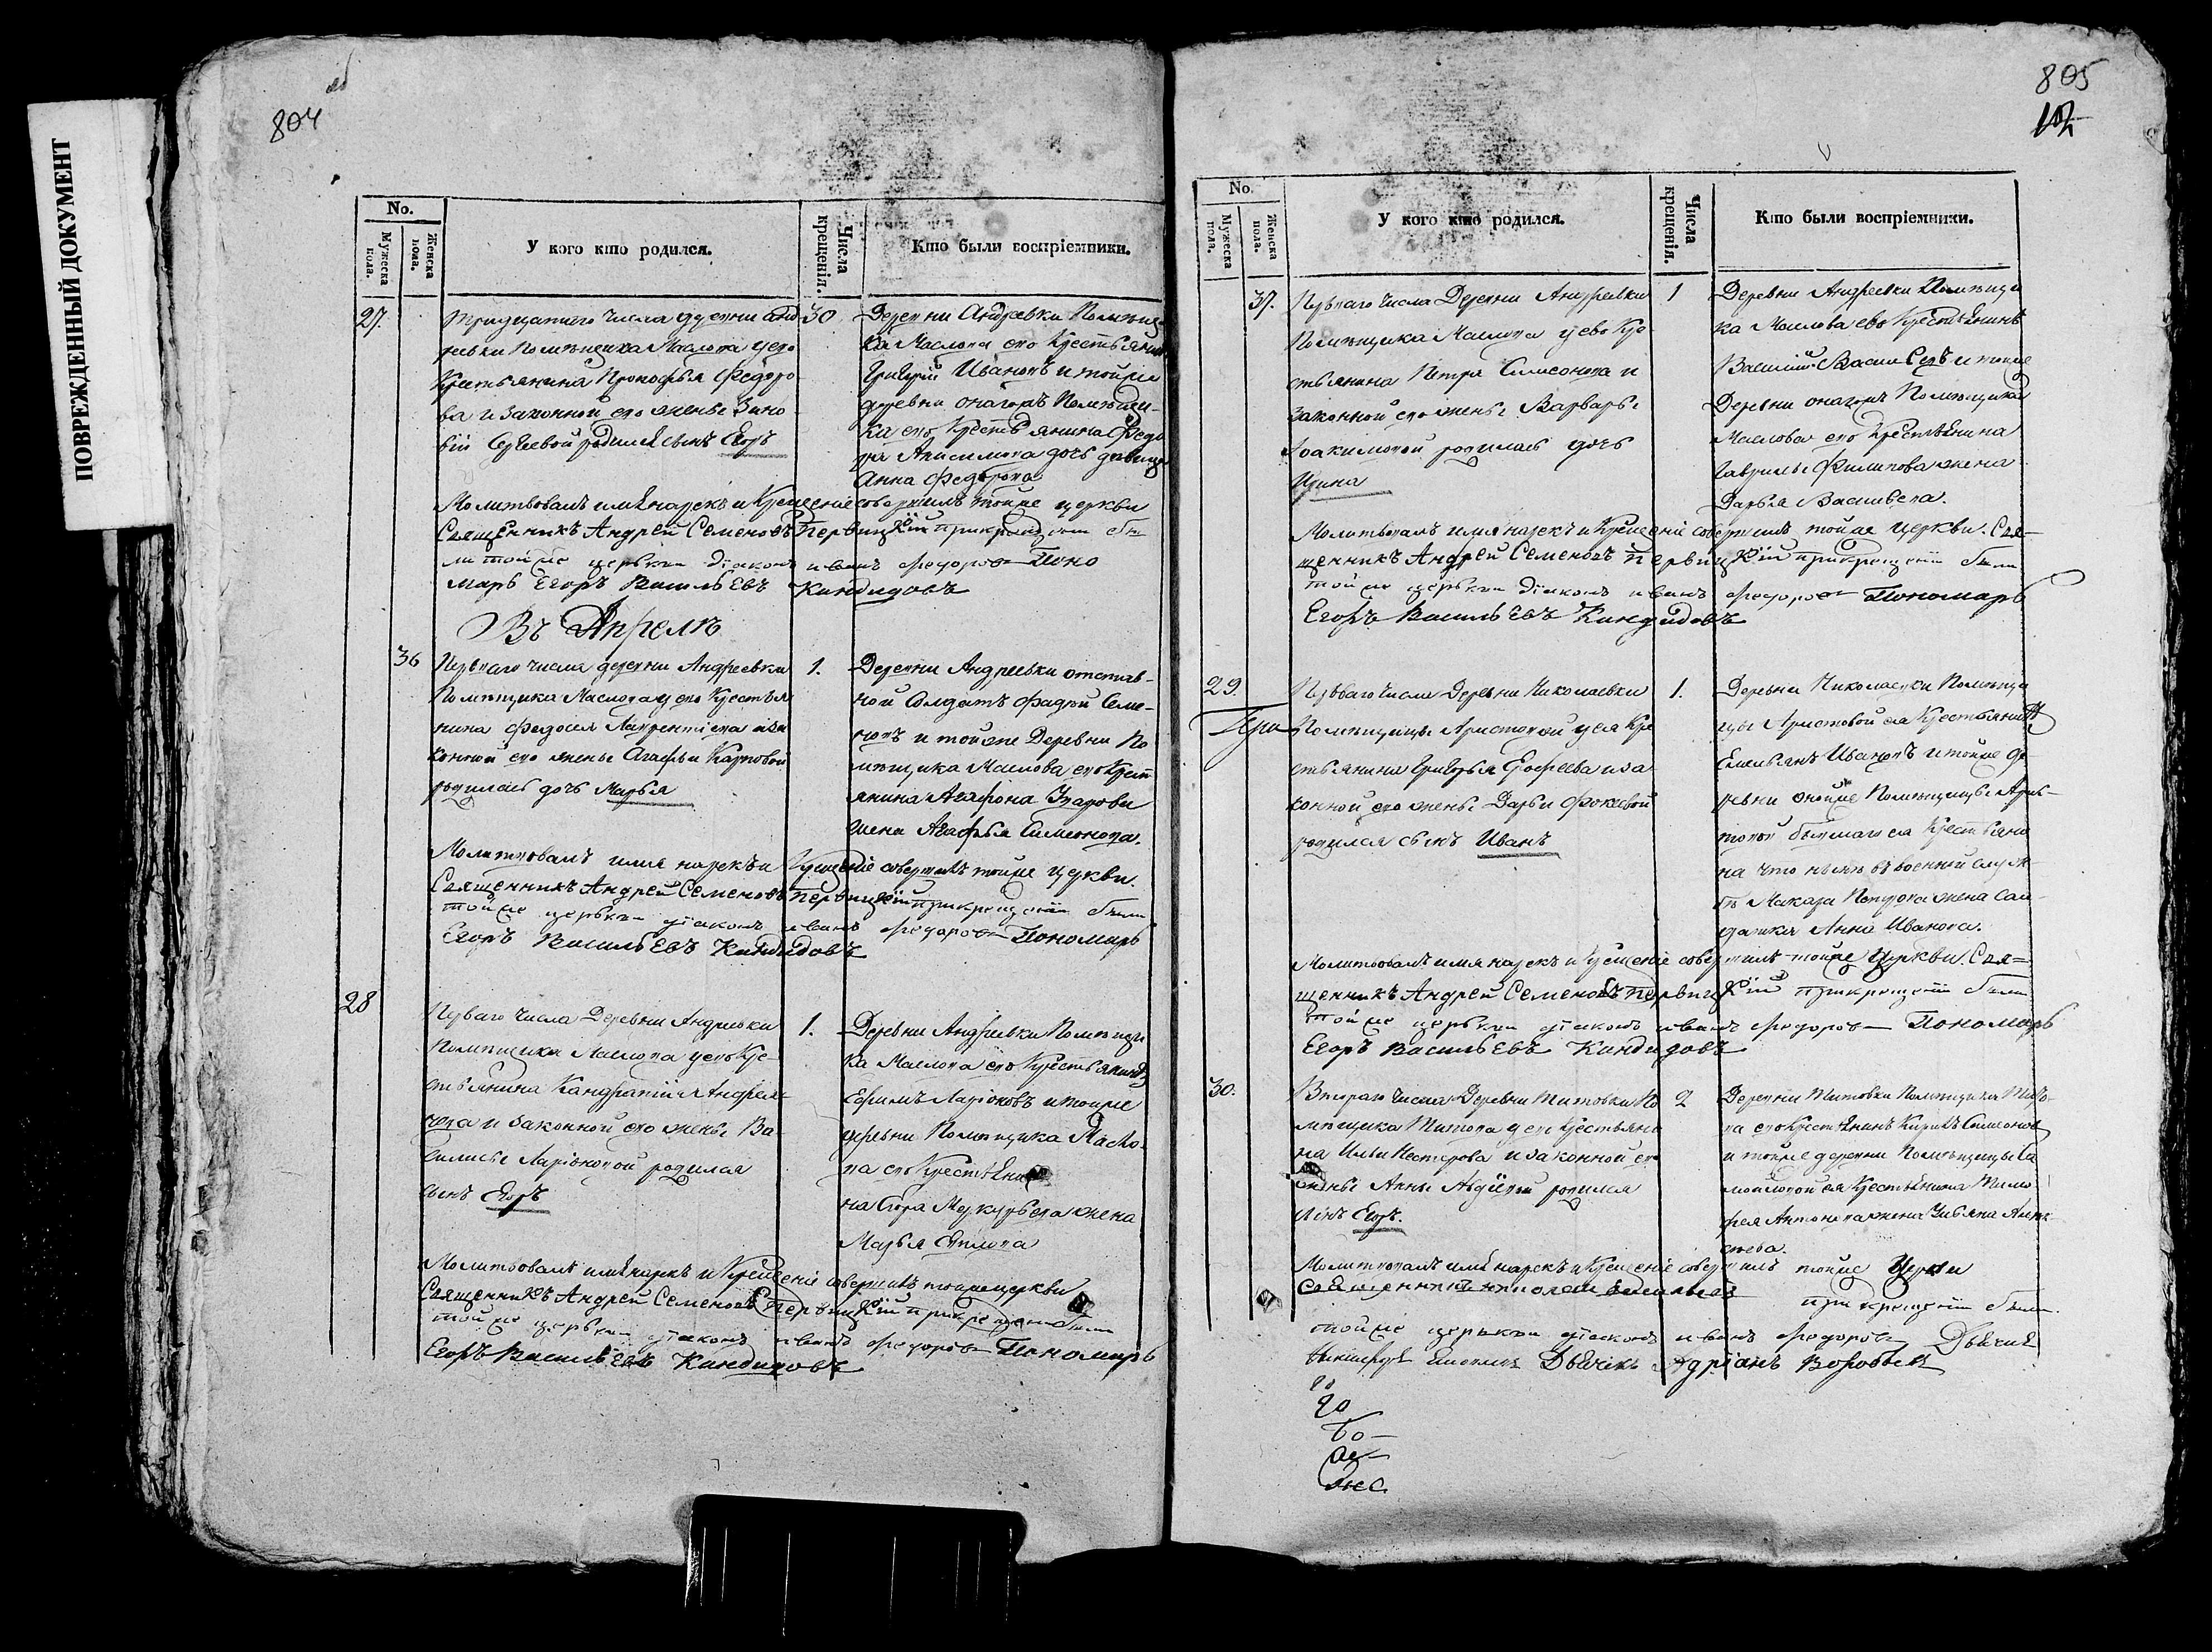 ПОВРЕЖДЕННЫЙ ДОКУМЕНТ
804
No.
Мужеска пола.
Женска пола.
У кого кто родился.
Числа крещенія.
Кто были воспріемники.
27.
Тридцатого числа деревни Анд
реевки Помѣщика Маслова у его
Крестьянина Прокофья Федоро
ва и законной его жены Зино
віи Сергеевой родился сынъ Егоръ
30
Деревни Андреевки Помѣщи
ка Маслова его Крестьянинъ
Григорій Ивановъ и тойже
деревни онагожъ Помѣщи-
ка его Крестьянина Федо
ра Анисимова дочь девица
Анна Федорова
Молитвовалъ имя нарекъ и Крещеніе совершилъ тойже церкви
Священникъ Андрей Семеновъ Первицкій при крещеніи бы
ли тойже церкви діаконъ иванъ федоровъ Поно
марь Егоръ Васильевъ Кандидовъ
Въ Апрелѣ
36
Перваго числа деревни Андреевки
Помѣщика Маслова у его Крестья
нина Федосея Лаврентіева и за
конной его жены Агафьи Карповой
родилась дочь Марья
1.
Деревни Андреевки отстав-
ной Солдатъ Фадей Семе-
новъ и тойже Деревни По
мѣщика Маслова его Крест
янина Агафона Уварова
жена Агафья Симонова.
Молитвовалъ имя нарекъ и Крещеніе совершилъ тойже церкви.
Священникъ Андрей Семеновъ Первицкій при крещеніи были
тойже церкви діаконъ иванъ федоровъ Пономарь
Егоръ Васильевъ Кандидовъ
28
Перваго числа Деревни Андреевки
Помѣщика Маслова у его Кре-
стьянина Кандратія Андрея-
чева и законной его жены Ва-
силисы Ларіоновой родился
сынъ Егоръ
1.
Деревни Андреевки Помѣщи
ка Маслова его Крестьянинъ
Ефимъ Ларіоновъ и тойже
деревни Помѣщика Масло-
ва его Крестьяни
на Егора Меркурьева жена
Марья
Молитвовалъ имя нарекъ и Крещеніе совершилъ тойже церкви
Священникъ Андрей Семеновъ Первицкій при крещеніи были
тойже церкви діаконъ иванъ федоровъ Пономарь
Егоръ Васильевъ Кандидовъ
805
No.
Мужеска пола.
Женска пола.
У кого кто родился.
Числа крещенія.
Кто были воспріемники.
37.
Перваго числа Деревни Андреевки
Помѣщика Маслова у ево Кре
стьянина Петра Самсонова и
законной его жены Варвары
Іоакимовой родилась дочь
Ирина
1
Деревни Андреевки Помѣщи
ка Маслова ево Крестьянинъ
Василій Васильевъ и тойже
Деревни онагожъ Помѣщика
Маслова его Крестьянина
Гаврилы Филипова жена
Дарья Васильева.
Молитвовалъ имя нарекъ и Крещеніе совершилъ тойже церкви. Свя-
щенникъ Андрей Семеновъ Первицкій при крещеніи были
тойже церкви діаконъ иванъ федоровъ Пономарь
Егоръ Васильевъ Кандидовъ
29.
Перваго числа Деревни Николаевки
Помѣщицы Аристовой у ея Кре
стьянина Григорья Ерофеева и за
конной его жены Дарьи Фокиевой
родился сынъ Иванъ
1.
Деревни Николаевки Помѣщи
цы Аристовой ея Крестьянинъ
Емельянъ Ивановъ и тойже де
ревни онойже Помѣщицы Арис-
товой бывшаго ея Крестьяни
на что нынѣ въ военной служ-
бѣ Макара Петрова жена Сал-
датка Анна Иванова.
Молитвовалъ имя нарекъ и Крещеніе совершилъ тойже Церкви. Свя-
щенникъ Андрей Семеновъ Первицкій при крещеніи были
тойже церкви діаконъ иванъ федоровъ Пономарь
Егоръ Васильевъ Кандидовъ
30.
Втораго числа Деревни Титовки По
мѣщика Титова у его Крестьяни
на Ильи Нестерова и законной его
жены Анны Авдѣевой родился
сынъ Егоръ.
2
Деревни Титовки Помѣщика Тито-
ва его Крестьянинъ Кирилъ Симонов
и тойже деревни Помѣщицы Са
мойловой ея Крестьянина Тимо
фея Антонова жена Ульяна Алек
сеева.
Молитвовалъ имя нарекъ и Крещеніе совершилъ тойже Церкви
Священникъ Николай Васильевъ при крещеніи были
тойже церкви діаконъ иванъ федоровъ Дьячекъ
Дьячекъ Адріанъ Воробьев